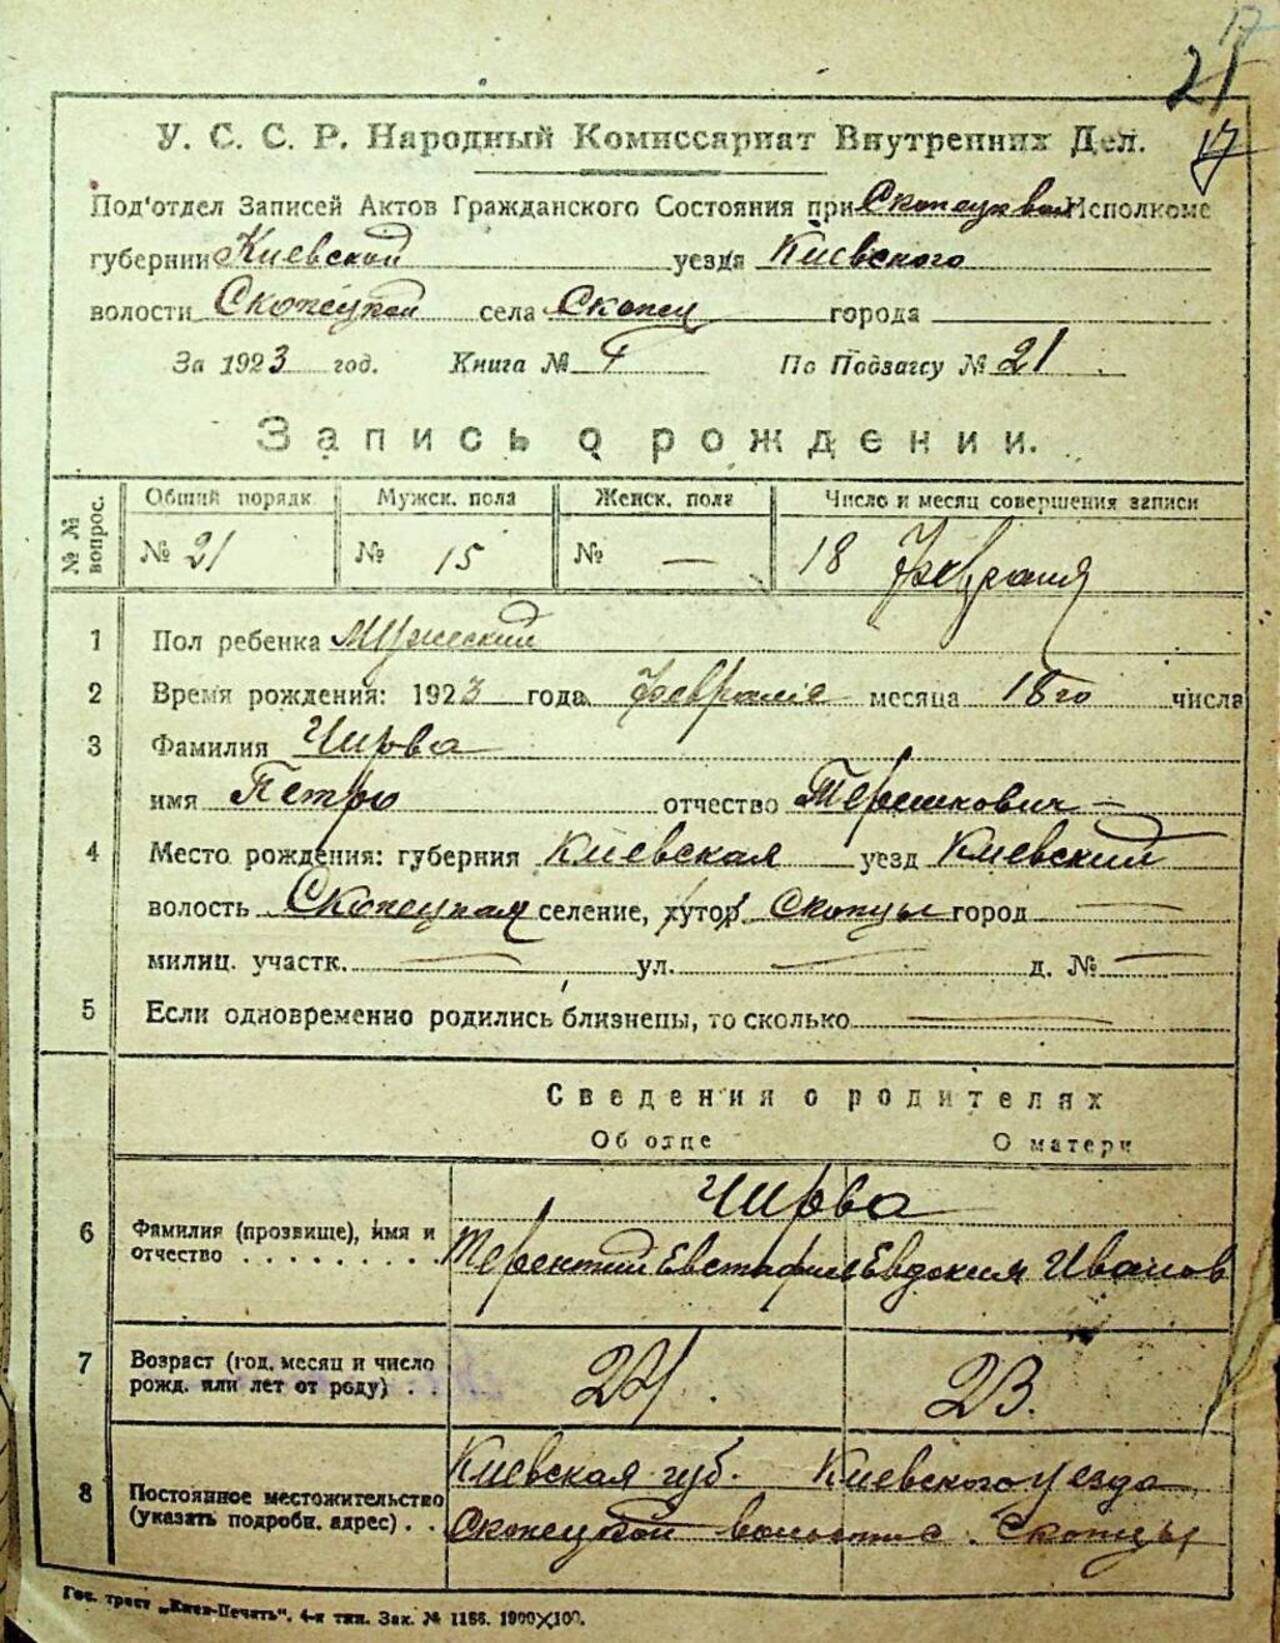 17
21
17
У. С. С. Р. Народный Комиссариат Внутренних Дел.
Под'отдел Записей Актов Гражданского Состояния при Скопецк вол Исполкоме
губернии Киевской уезда Киевского
волости Скопецкой села Скопец города
За 1923 год. Книга № I По Подзагсу № 21
Запись о рождении.
№ № вопрос. Общий порядк Мужск. пола Женск. пола Число и месяц совершения записи
№ 21 № 15 № — 18 Февраля
1 Пол ребенка Мужеский
2 Время рождения: 1923 года Февраля месяца 18го числа
3 Фамилия Чирва
имя Петро отчество Терешкович —
4 Место рождения: губерния Киевская уезд Киевский
волость Скопецкая селение, хутор Скопцы город —
милиц. участк. — ул. — д. № —
5 Если одновременно родились близнецы, то сколько —
Сведения о родителях
Об отце О матери
Чирва
6 Фамилия (прозвище), имя и
отчество . . . . . . . . . Терентий Евстафие Евдокия Иванов
7 Возраст (год, месяц и число
рожд. или лет от роду) . . 24. 23.
Киевская губ. Киевского уезда
8 Постоянное местожительство
(указать подробн. адрес) . . Скопецкой волости с. Скопцы
Гос. трест „Киев-Печать“. 4-я тип. Зак. № 1166. 1900×100.